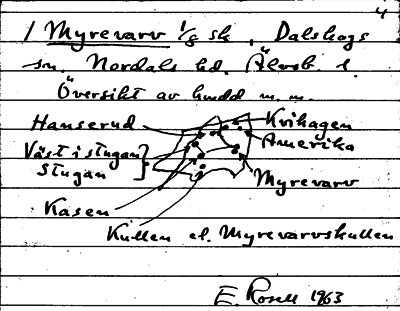 4
1 Myrevarv 1/8 sk, Dalskogs
sn. Nordals hd. Älvsb. l.
Översikt av hmdd m.m.
Hanserud
Kvihagen
Amerika
Väst i stugan
Stugan
Myrevarv
Kasen
Kullen el. Myrevarvskullen
E. Rosell 1963